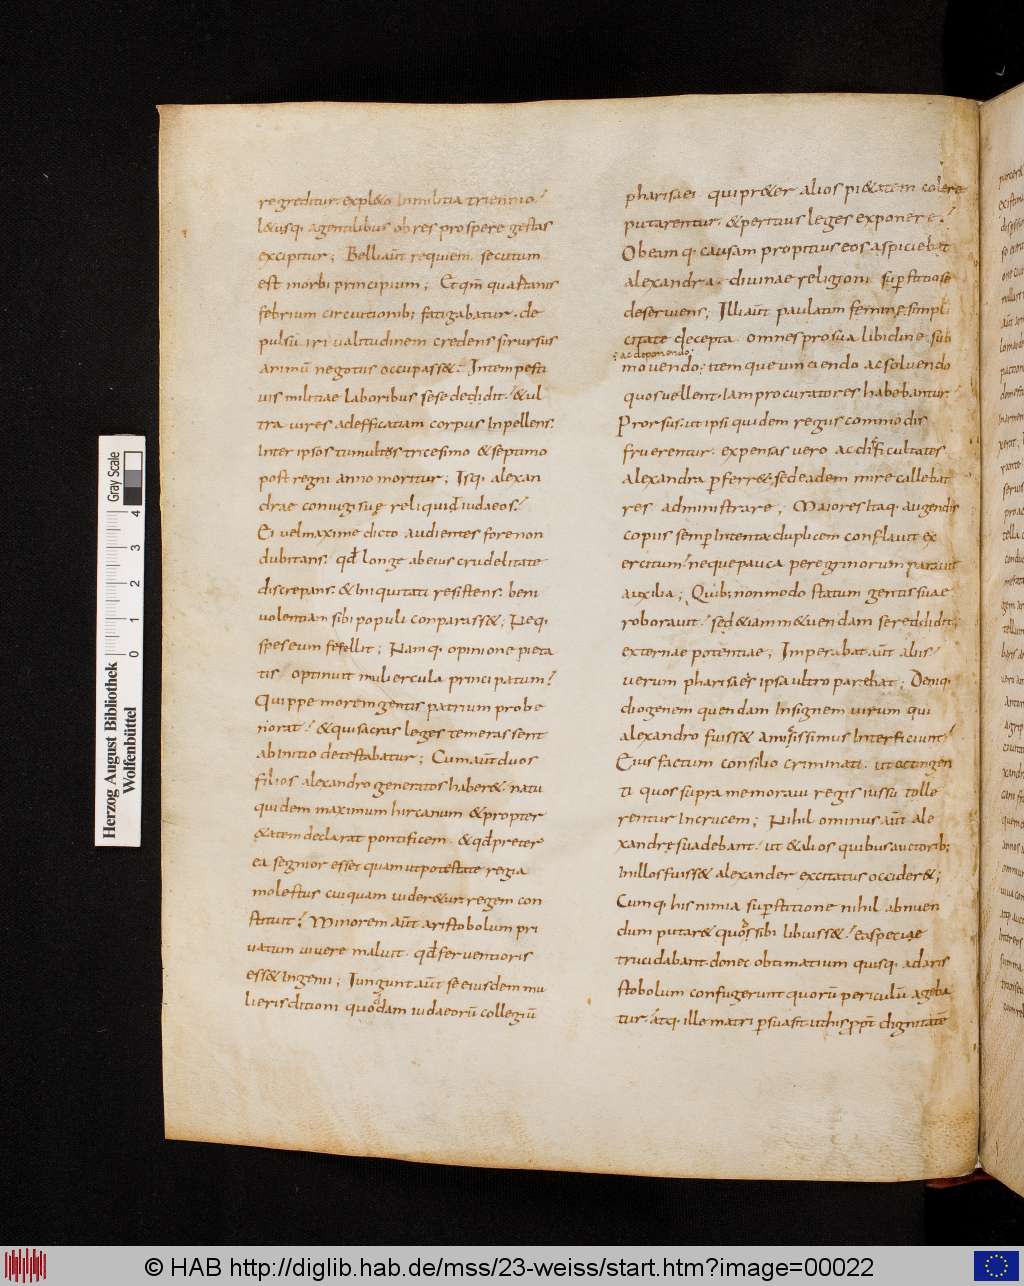 regreditur. expl&o In militia triennio;
l&usq. agentilibus obres prospere gestas
excipitur; Belli aut̄ requiem. secutum
est morbi principium; Et qm̄ quartanis
febrium circuitionib; fatigabatur. de
pulsū iri valitudinem credens si rursus
animū negotiis occupass&; Intempesti
uis militiae laboribus sese dedidit. &ul
tra uires adefficatiam corpus Inpellens.
Inter ipsos tumultos tricesimo &septimo
post regni anno moritur; Isq. alexan
drae coniugi suę reliquid iudaeos;
Ei uel maxime dicto audientes fore non
dubitans. qđ longe abeius crudelitate
discrepans. &Iniquitati resistens. beni
uolentiam sibi populi conparass&; Neq.
spes eum fefellit; Namq. opinione pieta
tis optinuit muliercula principatum;
Quippe morem gentis patrium probe
norat; &qui sacras leges temerassent
ab Initio detestabatur; Cum aut̄ duos
filios alexandro generatos haber&. natu
quidem maximum hircanum &propter
&atem declarat pontificem. &qđ preter
ea segnior esset quam ut potestate regia
molestus cuiquam uider&ur regem con
stituit; Minorem aut̄ aristobolum pri
uatum uiuere maluit. qđ feruentioris
ess& Ingenii; Iungunt aut̄ se eiusdem mu
lieris ditioni quodam iudaeorū collegiū
pharisaei qui pr&er alios pi&atem colere
putarentur. &peritius leges exponere;
Ob eamq. causam propitius eos aspiciebat
alexandra. diuinae religioni sup̄stitiose
deseruiens; Illi aut̄ paulatim feminę simpli
citate decepta. omnes pro sua libidine sub
ac deponendo
mouendo; item que uinciendo ac soluendo
quos uellent. Iam procuratores habebantur.
Prorsus. ut ipsi quidem regiis commodis
fruerentur. expensas uero ac difficultates
alexandra p̄ferr&. sed eadem mire callebat
res administrare; Maiores Itaq. augendis
copiis semp̄ Intenta. duplicem conflauit ex
ercitum; neque pauca peregrinorum parauit
auxilia; Quib; non modo statum gentis suae
roborauit. sed &iam m&uendam se reddidit;
externae potentiae; Imperabat aut̄ aliis;
uerum pharisaeis ipsa ultro parebat; Deniq.
diogenem quendam Insignem uirum qui
alexandro fuiss& amicissimus Interficiunt;
Eius factum consilio criminati. ut octingen
ti quos supra memoraui regis iussu tolle
rentur In crucem; Nihil ominus aut̄ ale
xandrę suadebant. ut &alios quibus auctorib;
In illos fuiss& alexander excitatus occider&;
Cumq. his nimia sup̄stitione nihil abnuen
dum putar& quos sibi libuiss&; ea specię
trucidabant. donec obtimatium quisq. ad aris
stobolum confugerunt quorū periculū ageba
tur. atq. ille matri p̄suasit ut his ꝓpt̄ dignitatē
Herzog August Bibliothek
Wolfenbüttel
Gray Scale
0 1 2 3 4
© HAB http://diglib.hab.de/mss/23-weiss/start.htm?image=00022